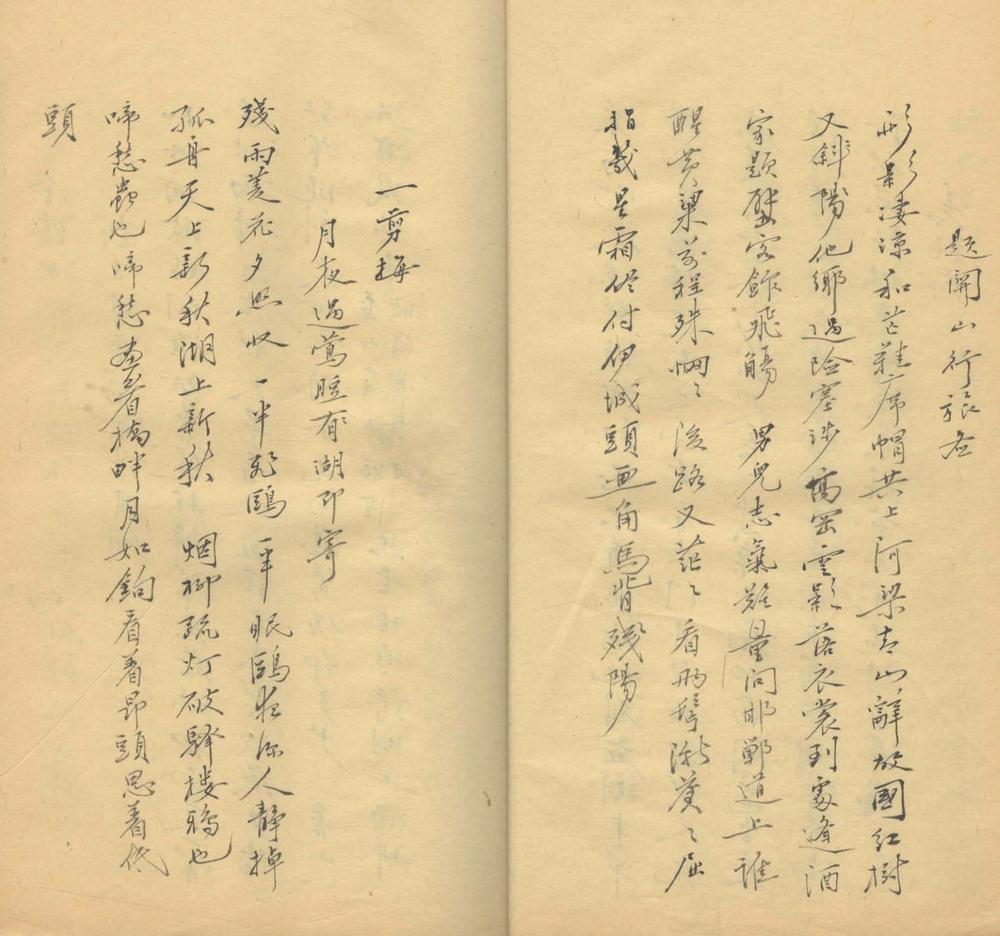 題關山行旅圖
形影凄涼和芒鞵席帽共上河梁青山辭故國紅樹
又斜陽他鄉過險塞涉高罡雲影落衣裳到處逢酒
家題壁客飲飛觴 男兒志氣難量問邯鄲道上誰
醒黃粱前程殊惘〻後路又茫〻看兩鬢漸蒼〻屈
指幾星霜儘付伊城頭画角馬背殘陽
一剪梅
月夜過鶯脰湖即寄
殘雨菱花夕照收一半飛鷗一半眠鷗夜深人靜掉
孤舟天上新秋湖上新秋 烟柳疏灯破驛樓鴉也
啼愁蟲也啼愁畫看橋畔月如鉤看着昂頭思着低
頭